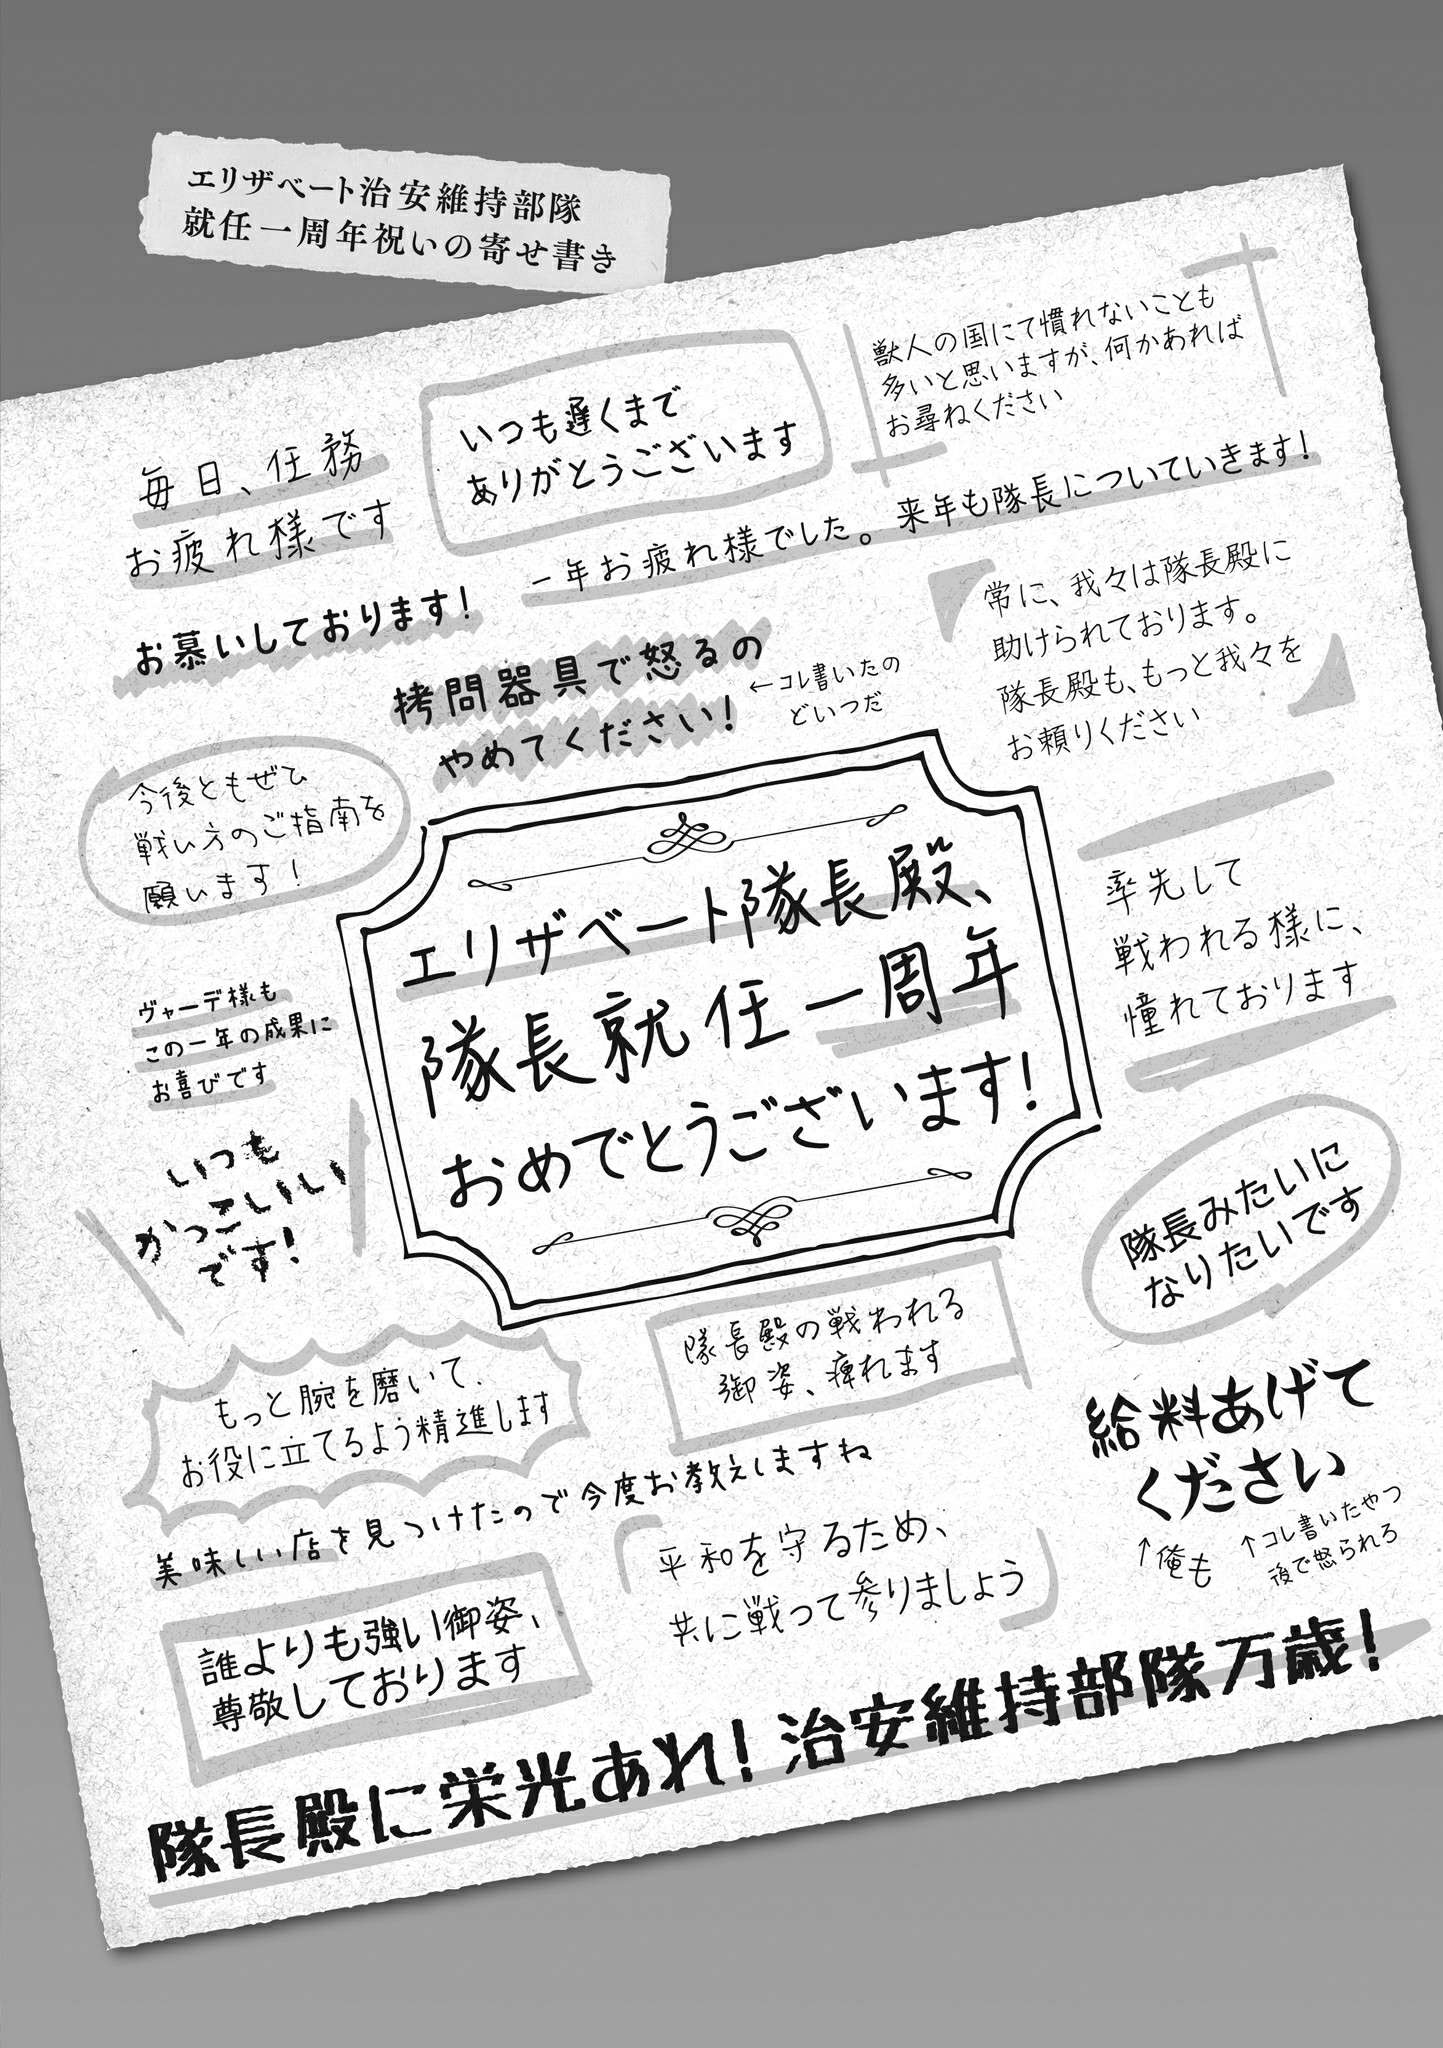 エリザベート治安維持部隊
就任一周年祝いの寄せ書き
獣人の国にて慣れないことも
多いと思いますが、何かあれば
お尋ねください
いつも遅くまで
ありがとうございます
毎日、任務
お疲れ様です
一年お疲れ様でした。来年も隊長についていきます！
お慕いしております！
常に、我々は隊長殿に
助けられております。
隊長殿も、もっと我々を
お頼りください
拷問器具で怒るの
やめてください！
←コレ書いたの
どいつだ
今後ともぜひ
戦い方のご指南を
願います！
エリザベート隊長殿、
隊長就任一周年
おめでとうございます！
率先して
戦われる様に、
憧れております
ヴァーデ様も
この一年の成果に
お喜びです
いつも
かっこいい
です！
隊長みたいに
なりたいです
隊長殿の戦われる
御姿、痺れます
もっと腕を磨いて、
お役に立てるよう精進します
給料あげて
ください
↑俺も
↑コレ書いたやつ
後で怒られろ
美味しい店を見つけたので今度お教えしますね
平和を守るため、
共に戦って参りましょう
誰よりも強い御姿、
尊敬しております
隊長殿に栄光あれ！治安維持部隊万歳！